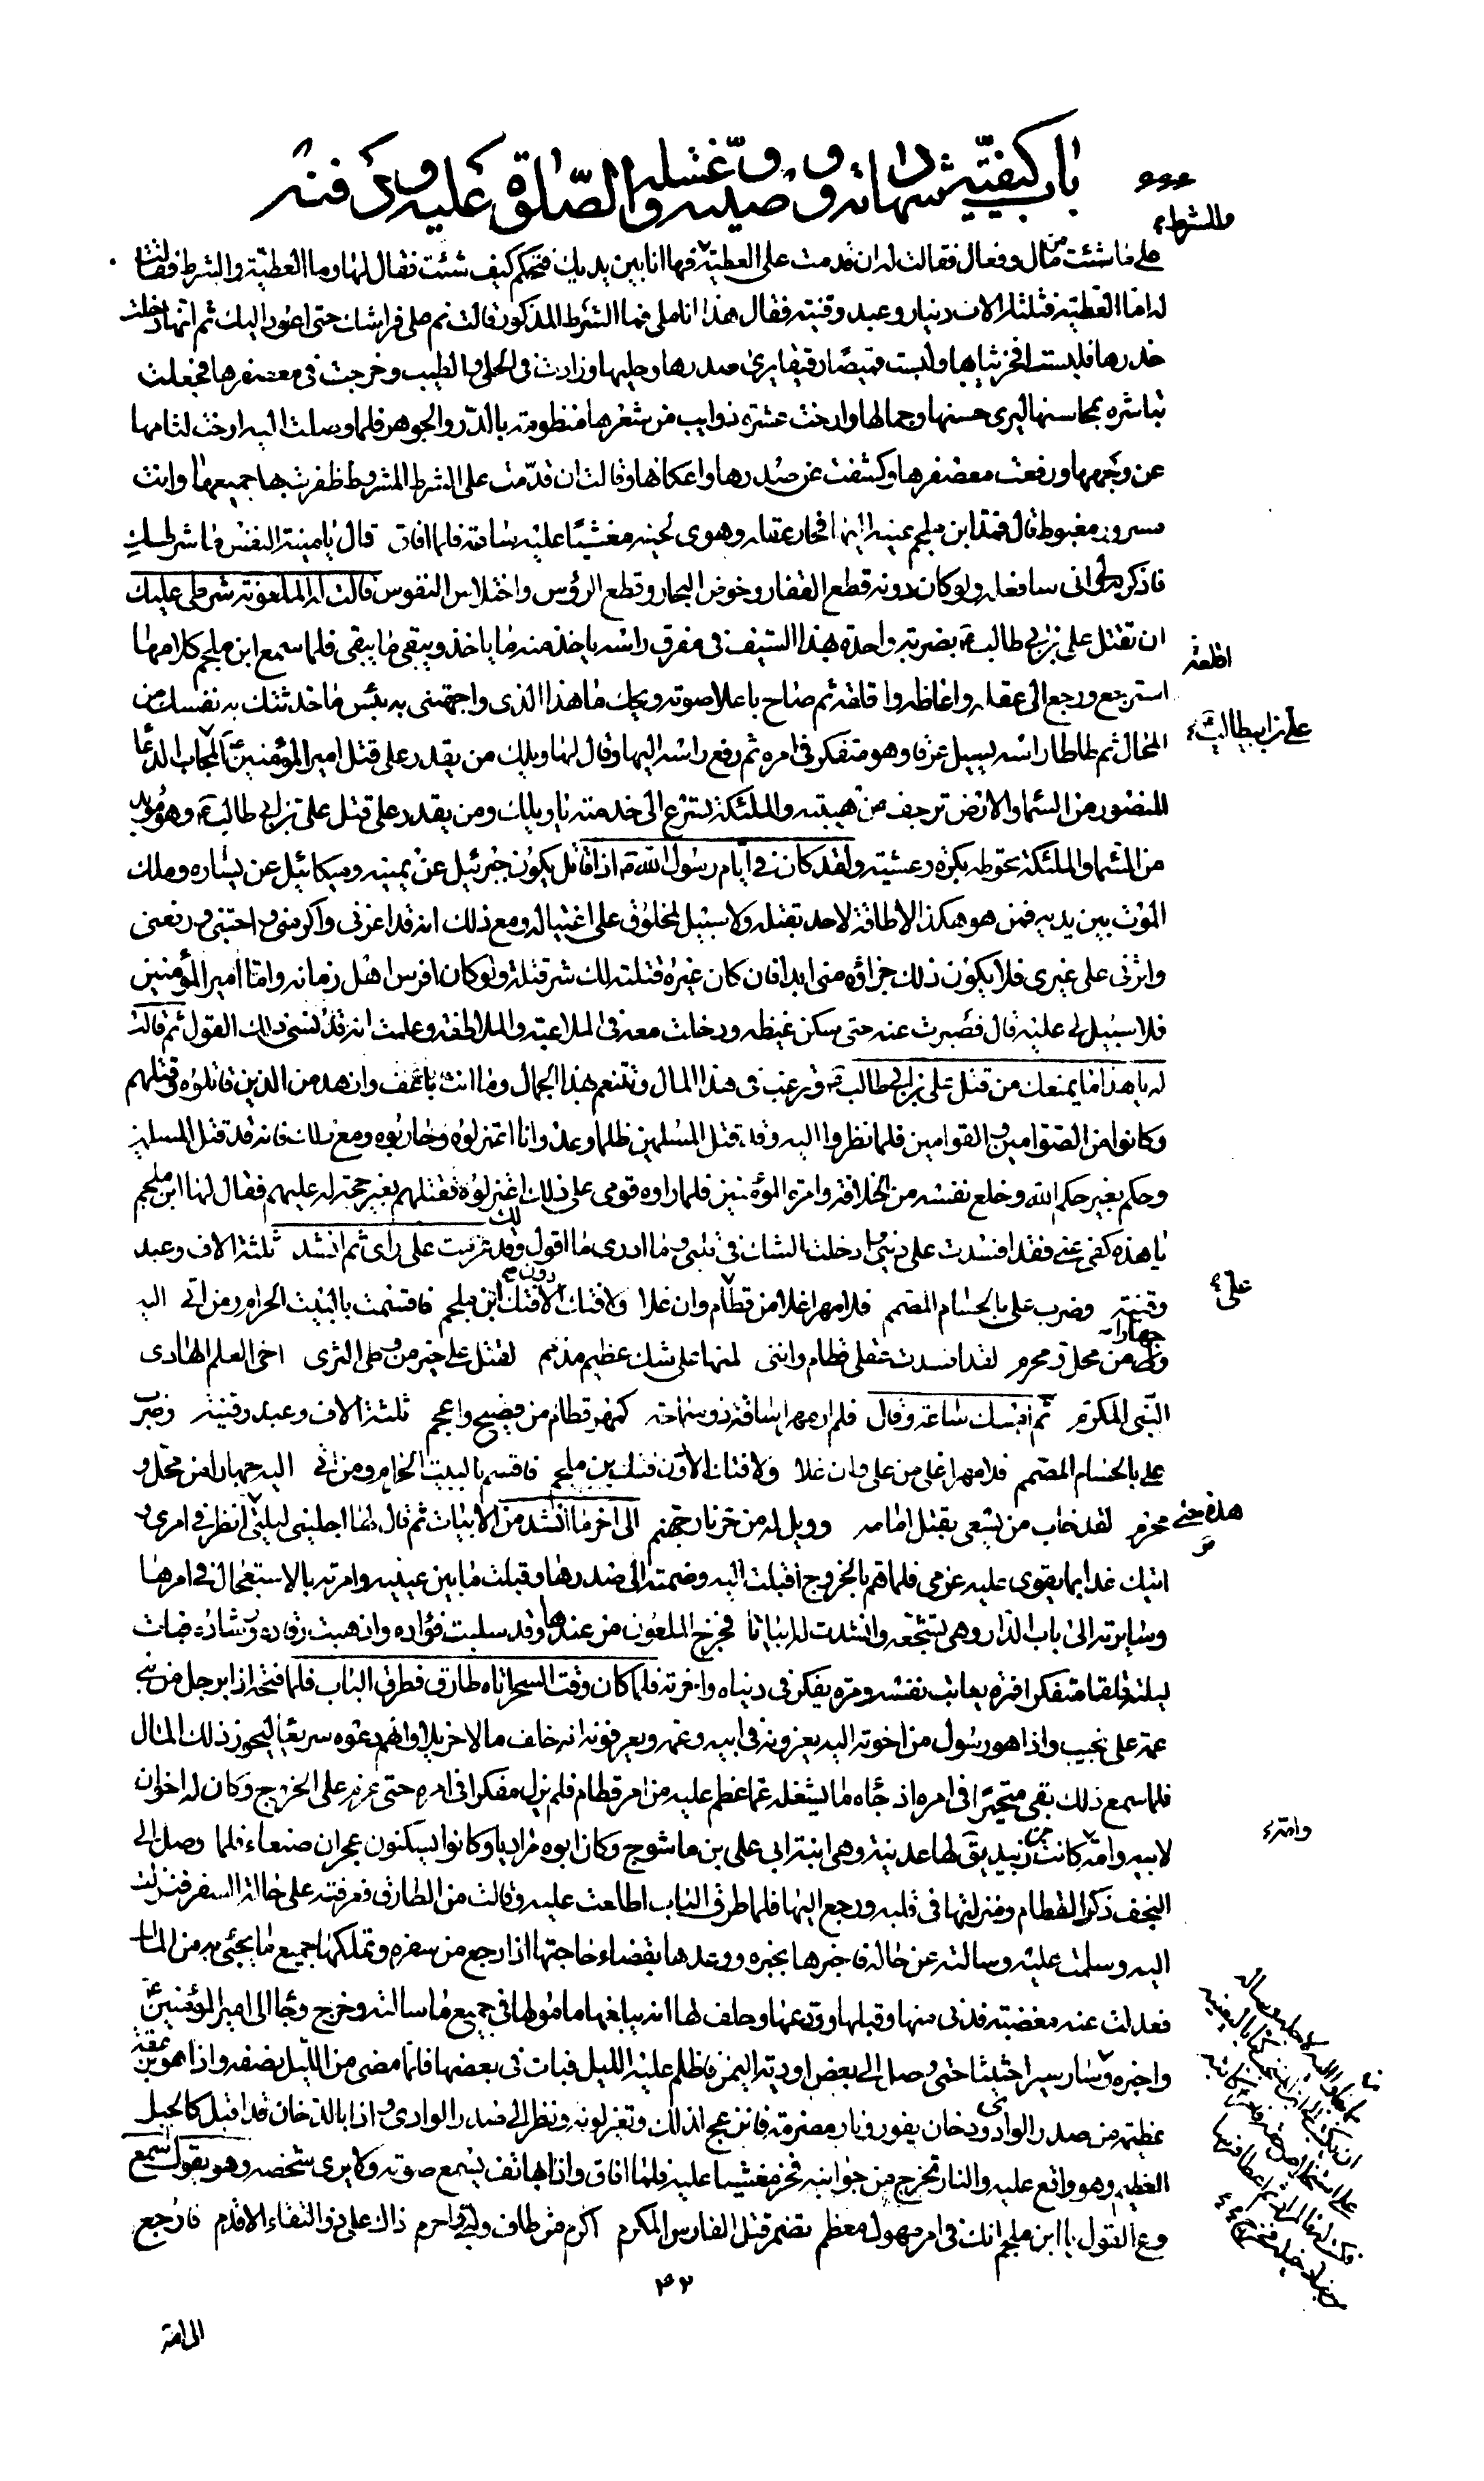 باب كيفيّة شهادته و وصيته و غسله و الصّلوة عليه و دفنه
على ما شئت من مال وفعال فقالت له ان قدمت على العطية فها انا بين يديك فتحكم كيف شئت فقال لها وما العطيّة والشرط فقالت
له امّا العطية فثلثة الاف دينار وعبد وقنية فقال هذا انا ملى فما الشرط المذكور قالت نم على فراشك حتى اعود اليك ثم انها دخلت
خدرها فلبست افخر ثيابها ولبست قميصًا رقيقا يرى صدرها وحليها وزادت فى الحلى والطيب وخرجت فى معصفرها فجعلت
تباشره بمحاسنها ليرى حسنها وجمالها وارخت عشرة ذوايب من شعرها منظومة بالدّر والجوهر فلما وصلت اليه ارخت لثامها
عن وجهها ورفعت معصفرها وكشفت عن صدرها واعكانها وقالت ان قدّمت على الشرط المشروط ظفرت بها جميعها وانت
مسرور مغبوط قال فمد ابن ملجم عينيه اليها فحار عقله وهوى لحينه مغشيًا عليه ساعة فلما افاق قال يا منية النفس ما شرطك
فاذكريه لى فانى سافعله ولو كان دونه قطع القفار وخوض البحار وقطع الرؤس واختلاس النفوس قالت له الملعونة شرطى عليك
ان تقتل على بن ابى طالب بضربة واحدة بهذا السّيف فى مفرق راسه ياخذ منه ما ياخذ ويبقى ما يبقى فلما سمع ابن ملجم كلامها
استرجع ورجع الى عقله واغاظه واقلقه ثم صاح باعلا صوته ويحك ما هذا الذى واجهتنى به بئس ما حدثتك به نفسك من
المحال ثم طاطا راسه يسيل عرقا وهو متفكر فى امره ثم رفع راسه اليها وقال لها ويلك من يقدر على قتل امير المؤمنين المجاب الدعا
المنصور من السّماء والارض ترجف من هيبته والملئكة تسرع الى خدمته يا ويلك ومن يقدر على قتل على بن ابى طالب وهو مؤيد
من السّماء والملئكة تحوطه بكرة وعشية ولقد كان فى ايام رسول الله اذا قاتل يكون جبرئيل عن يمينه وميكائيل عن يساره وملك
الموت بين يديه فمن هو هكذا لا طاقة لاحد بقتله ولا سبيل لمخلوق على اغتياله ومع ذلك انه قد اعزنى واكرمنى واحبنى ورفعنى
واثرنى على غيرى فلا يكون ذلك جزاؤه منى ابدا فان كان غيره قتلته لك شر قتلة ولو كان افرس اهل زمانه وامّا امير المؤمنين
فلا سبيل لى عليه قال فصبرت عنه حتى سكن غيظه ودخلت معه فى الملاعبة والملاطفة وعلمت انه قد نسى ذلك القول ثم قالت
له يا هذا ما يمنعك من قتل على بن ابى طالب وترغب فى هذا المال وتتنعم بهذا الجمال وما انت باعف وازهد من الذين قاتلوه وقتلهم
وكانوا من الصّوامين والقوامين فلما نظروا اليه وقد قتل المسلمين ظلما وعدوانا اعتزلوه وحاربوه ومع ذلك فانه قد قتل المسلمين
وحكم بغير حكم الله وخلع نفسه من الخلافة وامرة المؤمنين فلما راوه قومى على ذلك اعتزلوه فقتلهم بغير حجة له عليهم فقال لها ابن ملجم
يا هذه كفى عنى فقد افسدت على دينى وادخلت الشك فى قلبى وما ادرى ما اقول لك وقد عزمت على راى ثم انشد ثلثة الاف وعبد
وقينة وضرب على بالحسام المصمم فلا مهر اغلا من قطام وان غلا ولا فتك الا دون فتك ابن ملجم فاقسمت بالبيت الحرام ومن اتى اليه
جهارا من محل ومحرم لقد افسدت عقلى قطام واننى لمنها على شك عظيم مذمم لقتل على خير من وطى الثرى اخى العلم الهادى
النّبى المكرّم ثم امسك ساعة وقال فلم ار مهرا ساقه ذو سماحة كمهر قطام من فصيح واعجم ثلثة الاف وعبد وقينة وضرب
على بالحسام المصمم فلا مهر اغلى من على وان غلا ولا فتك الا دون فتك بن ملجم فاقسم بالبيت الحرام ومن اتى اليه جهارا من محل و
محرم لقد خاب من يسعى بقتل امامه وويل له من حر نار جهنم الى اخر ما انشد من الابيات ثم قال لها اجلينى ليلتى انظر فى امرى و
اتيك غدا بما يقوى عليه عزمى فلما هم بالخروج اقبلت اليه وضمته الى صدرها وقبلت ما بين عينيه وامرته بالاستعجال فى امرها
وسايرته الى باب الدّار وهى تشجعه وانشدت له ابياتا فخرج الملعون من عندها وقد سلبت فؤاده واذهبت رقاده ورشاده فبات
ليلته قلقا متفكرا فمرة يعاتب نفسه ومرة يفكر فى دنياه واخرته فلما كان وقت السحر اتاه طارق فطرق الباب فلما فتحه اذا برجل من بنى
عمه على نجيب واذا هو رسول من اخوته اليه يعزونه فى ابيه وعمه ويعرفونه انه خلف مالا جزيلا وانهم دعوه سريعًا ليحوز ذلك المال
فلما سمع ذلك بقى متحيّرا فى امره اذ جاءه ما يشغله عما عظم عليه من امر قطام فلم يزل مفكرا فى امره حتى عزم على الخروج وكان له اخوان
لابيه وامّه كانت من زبيد يقال لها عدنية وهى ابنة ابى على بن ماشوج وكان ابوه مراديا وكانوا يسكنون عجران صنعاء فلما وصل الى
النجف ذكر القطام ومنزلتها فى قلبه ورجع اليها فلما طرق الباب اطلعت عليه وقالت من الطارق فعرفته على حالة السفر فنزلت
اليه وسلمت عليه وسالته عن حاله فاخبرها بخبره ووعدها بقضاء حاجتها اذا رجع من سفره وتملكها جميع ما يجئ به من المال
فعدلت عنه مغضبة فدنى منها وقبلها وودعها وحلف لها انه يبلغها مامولها فى جميع ما سالته وخرج وجا الى امير المؤمنين
واخبره وسار سيرا حثيثا حتى وصل الى بعض اودية اليمن فاظلم عليه الليل فبات فى بعضها فلما مضى من اللّيل نصفه واذا هو بزعقة
عظيمة من صدر الوادى ودخان يفور ونار مضرمة فانزعج لذلك وتغير لونه ونظر الى صدر الوادى واذا بالدخان قد اقبل كالجبل
العظيم وهو واقع عليه والنار تخرج من جوانبه فخر مغشيا عليه فلما افاق واذا بهاتف يسمع صوته ولا يرى شخصه وهو يقول اسمع
وع القول يا ابن ملجم انك فى امر مهول معظم تضمر قتل الفارس المكرم اكرم من طاف ولبى واحرم ذاك على ذو التقاء الاقدم فارجع
والشرط
على بن ابيطالب
على
هذه حتى
وامه
٤٢
الى الله